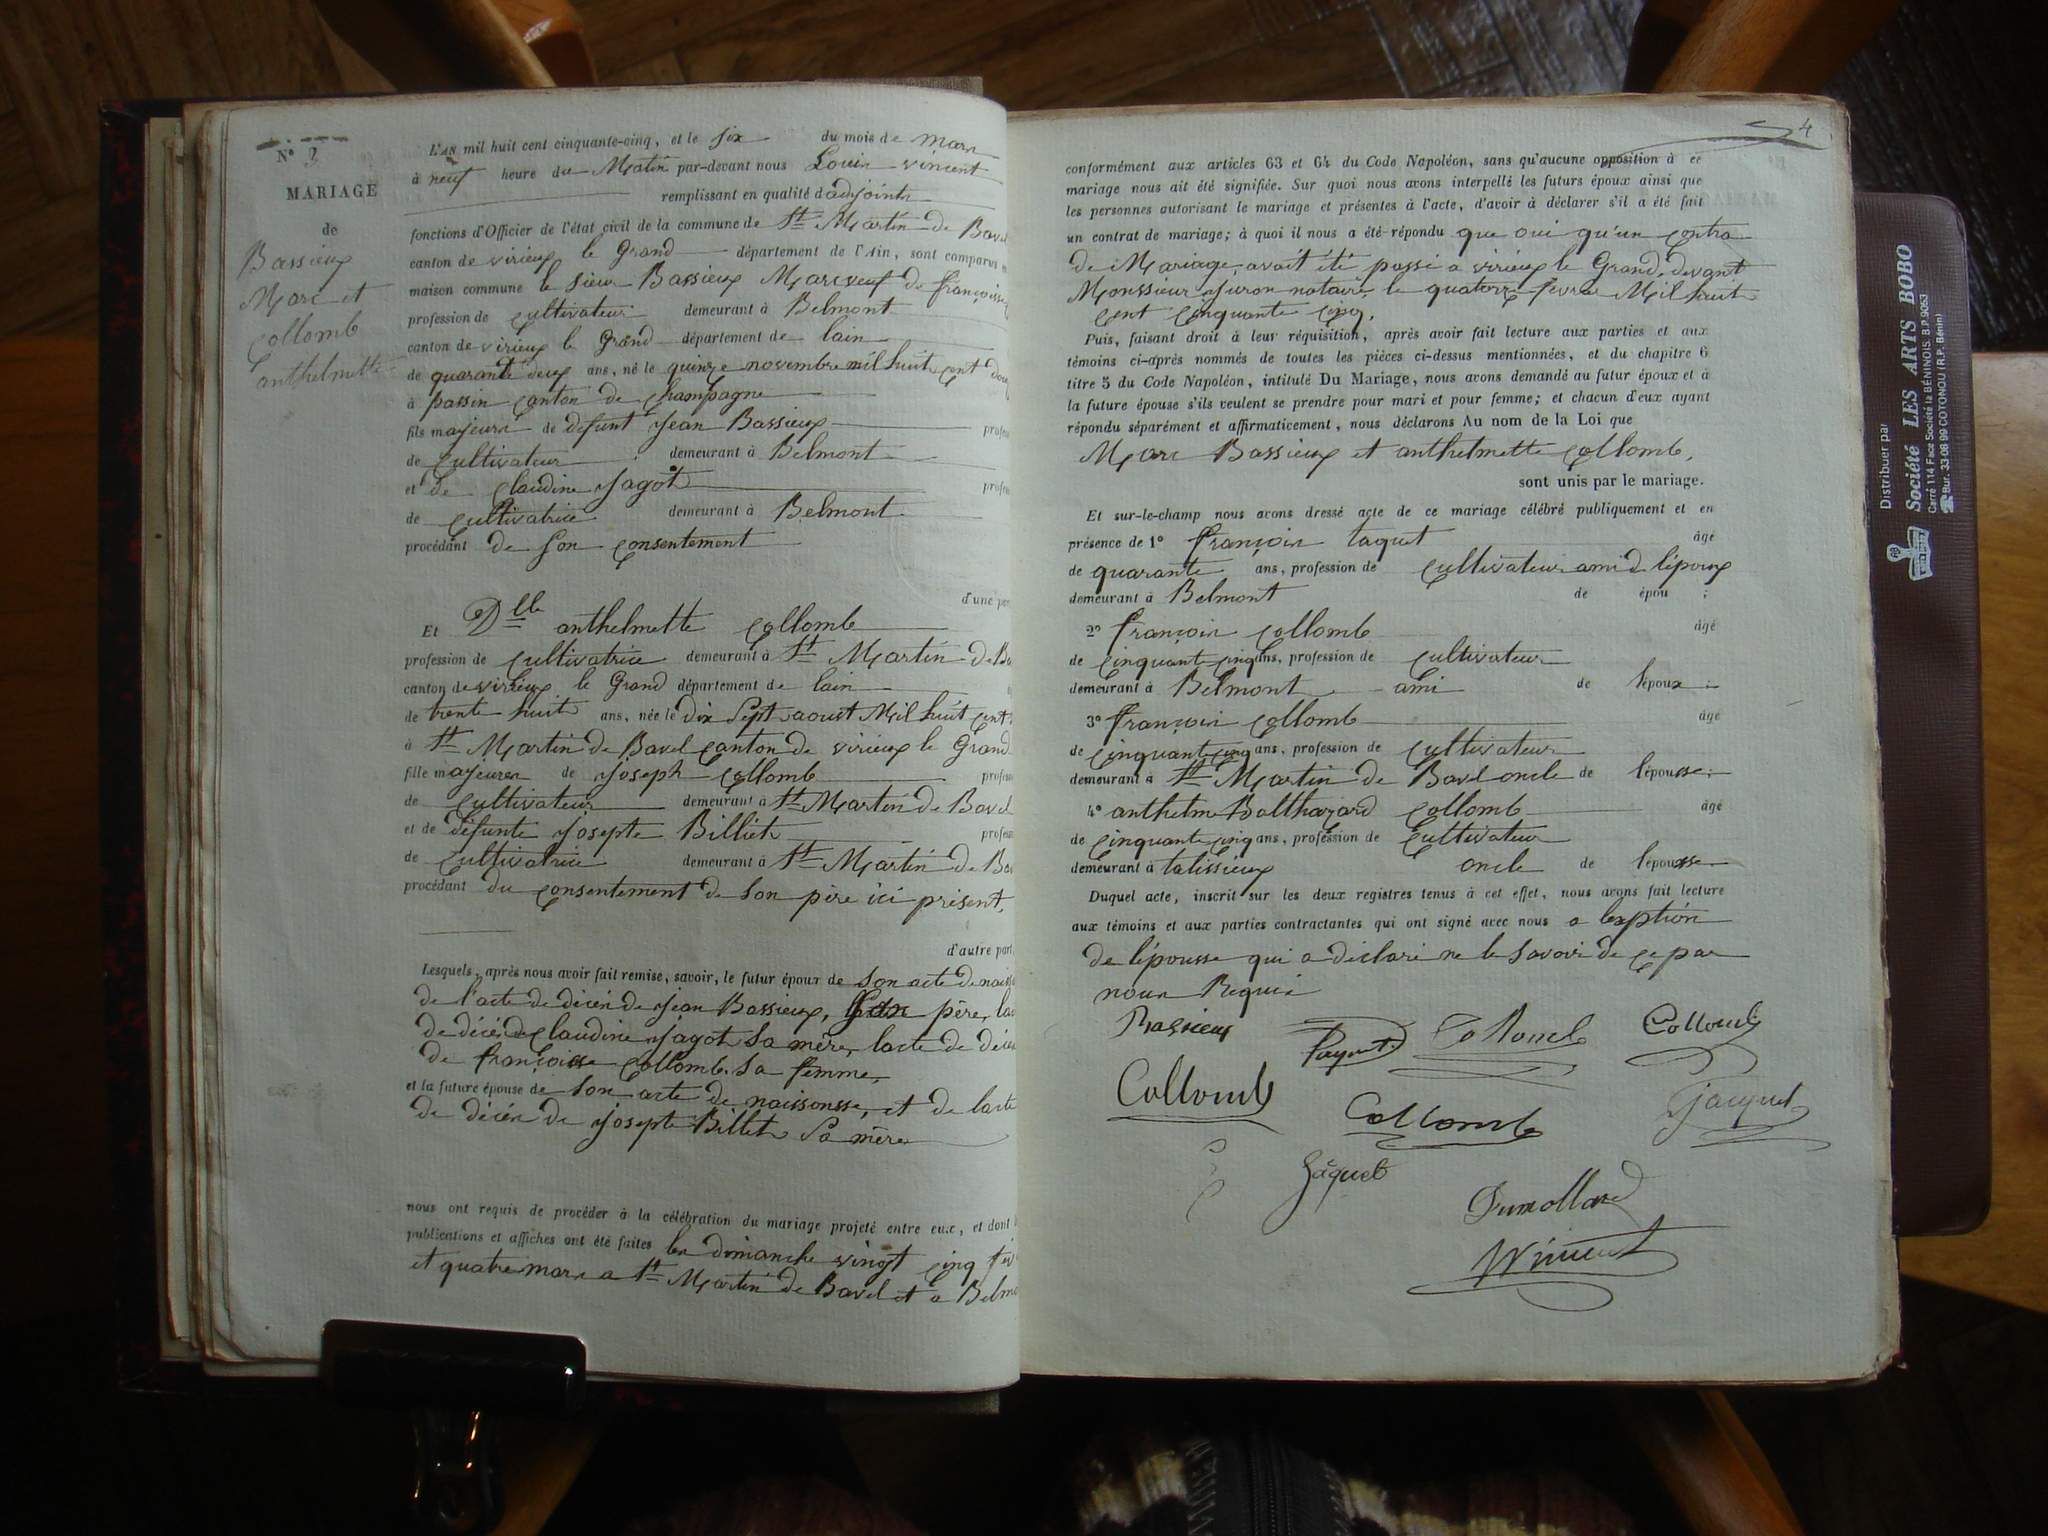 N° 2
MARIAGE
de
Bassieux
Marc et
Collomb
anthelmette
L'AN mil huit cent cinquante-cinq, et le six du mois de mars
à neuf heure du Matin par-devant nous Louis vincent
remplissant en qualité d'adjoint
fonctions d'Officier de l'état civil de la commune de St Martin de Bavel
canton de virieux le Grand département de l'Ain, sont comparus
maison commune le sieur Bassieux Marc veuf de françoisse
profession de Cultivateur demeurant à Belmont
canton de virieux le Grand département de lain
de quarante deux ans, né le quinze novembre mil huit cent douz
à passin Canton de Champagne
fils majeurs de défunt Jean Bassieux profes
de Cultivateur demeurant à Belmont
et de Claudine Jagot profes
de Cultivatrice demeurant à Belmont
procédant de son Consentement
d'une par
Et Dlle anthelmette Collomb
profession de Cultivatrice demeurant à St Martin de Ba
canton de virieux le Grand département de lain
de trente huit ans, née le dix sept aoust Mil huit cent
à St Martin de Bavel Canton de virieux le Grand
fille majeures de Joseph Collomb profess
de Cultivateur demeurant à St Martin de Bavel
et de défunte Josepte Billiet profes
de Cultivatrice demeurant à St Martin de Ba
procédant du Consentement de son père ici présent,
d'autre part.
Lesquels, après nous avoir fait remise, savoir, le futur époux de son acte de naiss
de l'acte de décés de Jean Bassieux, père, lac
de décés de Claudine Jagot sa mère, lacte de décé
de françoisse Collomb. sa femme,
et la future épouse de son acte de naissonsse, et de lacte
de décés de Josepte Billet sa mère
nous ont requis de procéder à la célébration du mariage projeté entre eux, et dont l
publications et affiches ont été faites les dimanche vingt cinq fév
et quatre mars a St Martin de Bavel et a Belmo
4
conformément aux articles 63 et 64 du Code Napoléon, sans qu'aucune opposition à ce
mariage nous ait été signifiée. Sur quoi nous avons interpellé les futurs époux ainsi que
les personnes autorisant le mariage et présentes à l'acte, d'avoir à déclarer s'il a été fait
un contrat de mariage; à quoi il nous a été répondu que oui qu'un Contra
de Mariage, avait été passé a virieux le Grand, devant
Monssieur Juron notaire, le quatorze fevrie Mil huit
Cent Cinquante Cinq.
Puis, faisant droit à leur réquisition, après avoir fait lecture aux parties et aux
témoins ci-après nommés de toutes les pièces ci-dessus mentionnées, et du chapitre 6
titre 5 du Code Napoléon, intitulé Du Mariage, nous avons demandé au futur époux et à
la future épouse s'ils veulent se prendre pour mari et pour femme; et chacun d'eux ayant
répondu séparément et affirmaticement, nous déclarons Au nom de la Loi que
Marc Bassieux et anthelmette Collomb,
sont unis par le mariage.
Et sur-le-champ nous avons dressé acte de ce mariage célébré publiquement et en
présence de 1° françois taquet âgé
de quarante ans, profession de Cultivateur ami de lépoux
demeurant à Belmont de épou ;
2° françois Collomb âgé
de Cinquante Cinq ans, profession de Cultivateur
demeurant à Belmont ami de lépoux ;
3° françois Collomb âgé
de Cinquante Cinq ans, profession de Cultivateur
demeurant à St Martin de Bavel oncle de lépousse;
4° anthelme Balthazard Collomb âgé
de Cinquante Cinq ans, profession de Cultivateur
demeurant à talissieux oncle de lépousse
Duquel acte, inscrit sur les deux registres tenus à cet effet, nous avons fait lecture
aux témoins et aux parties contractantes qui ont signé avec nous a lexption
de lépousse qui a déclaré ne le savoir de ce par
nous Requis
Bassieux Collomb Collomb
Collomb Collomb Jacquet
Jâquet
Dumollard
Vincent
Distribuer par
Société LES ARTS BOBO
Carré 114 Face Société la BÉNINOIS. B.P. 9053
Bur. 33 06 99 COTONOU (R.P. Bénin)